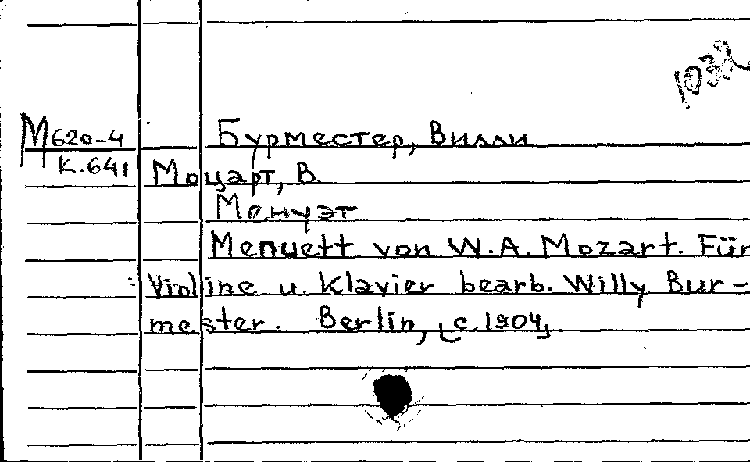 1032
М620-4 Бурместер, Вилли
К.641 Моцарт, В.
Менуэт
Menuett von W.A. Mozart. Für
Violine u. Klavier bearb. Willy Bur-
mester. Berlin, [c. 1904].